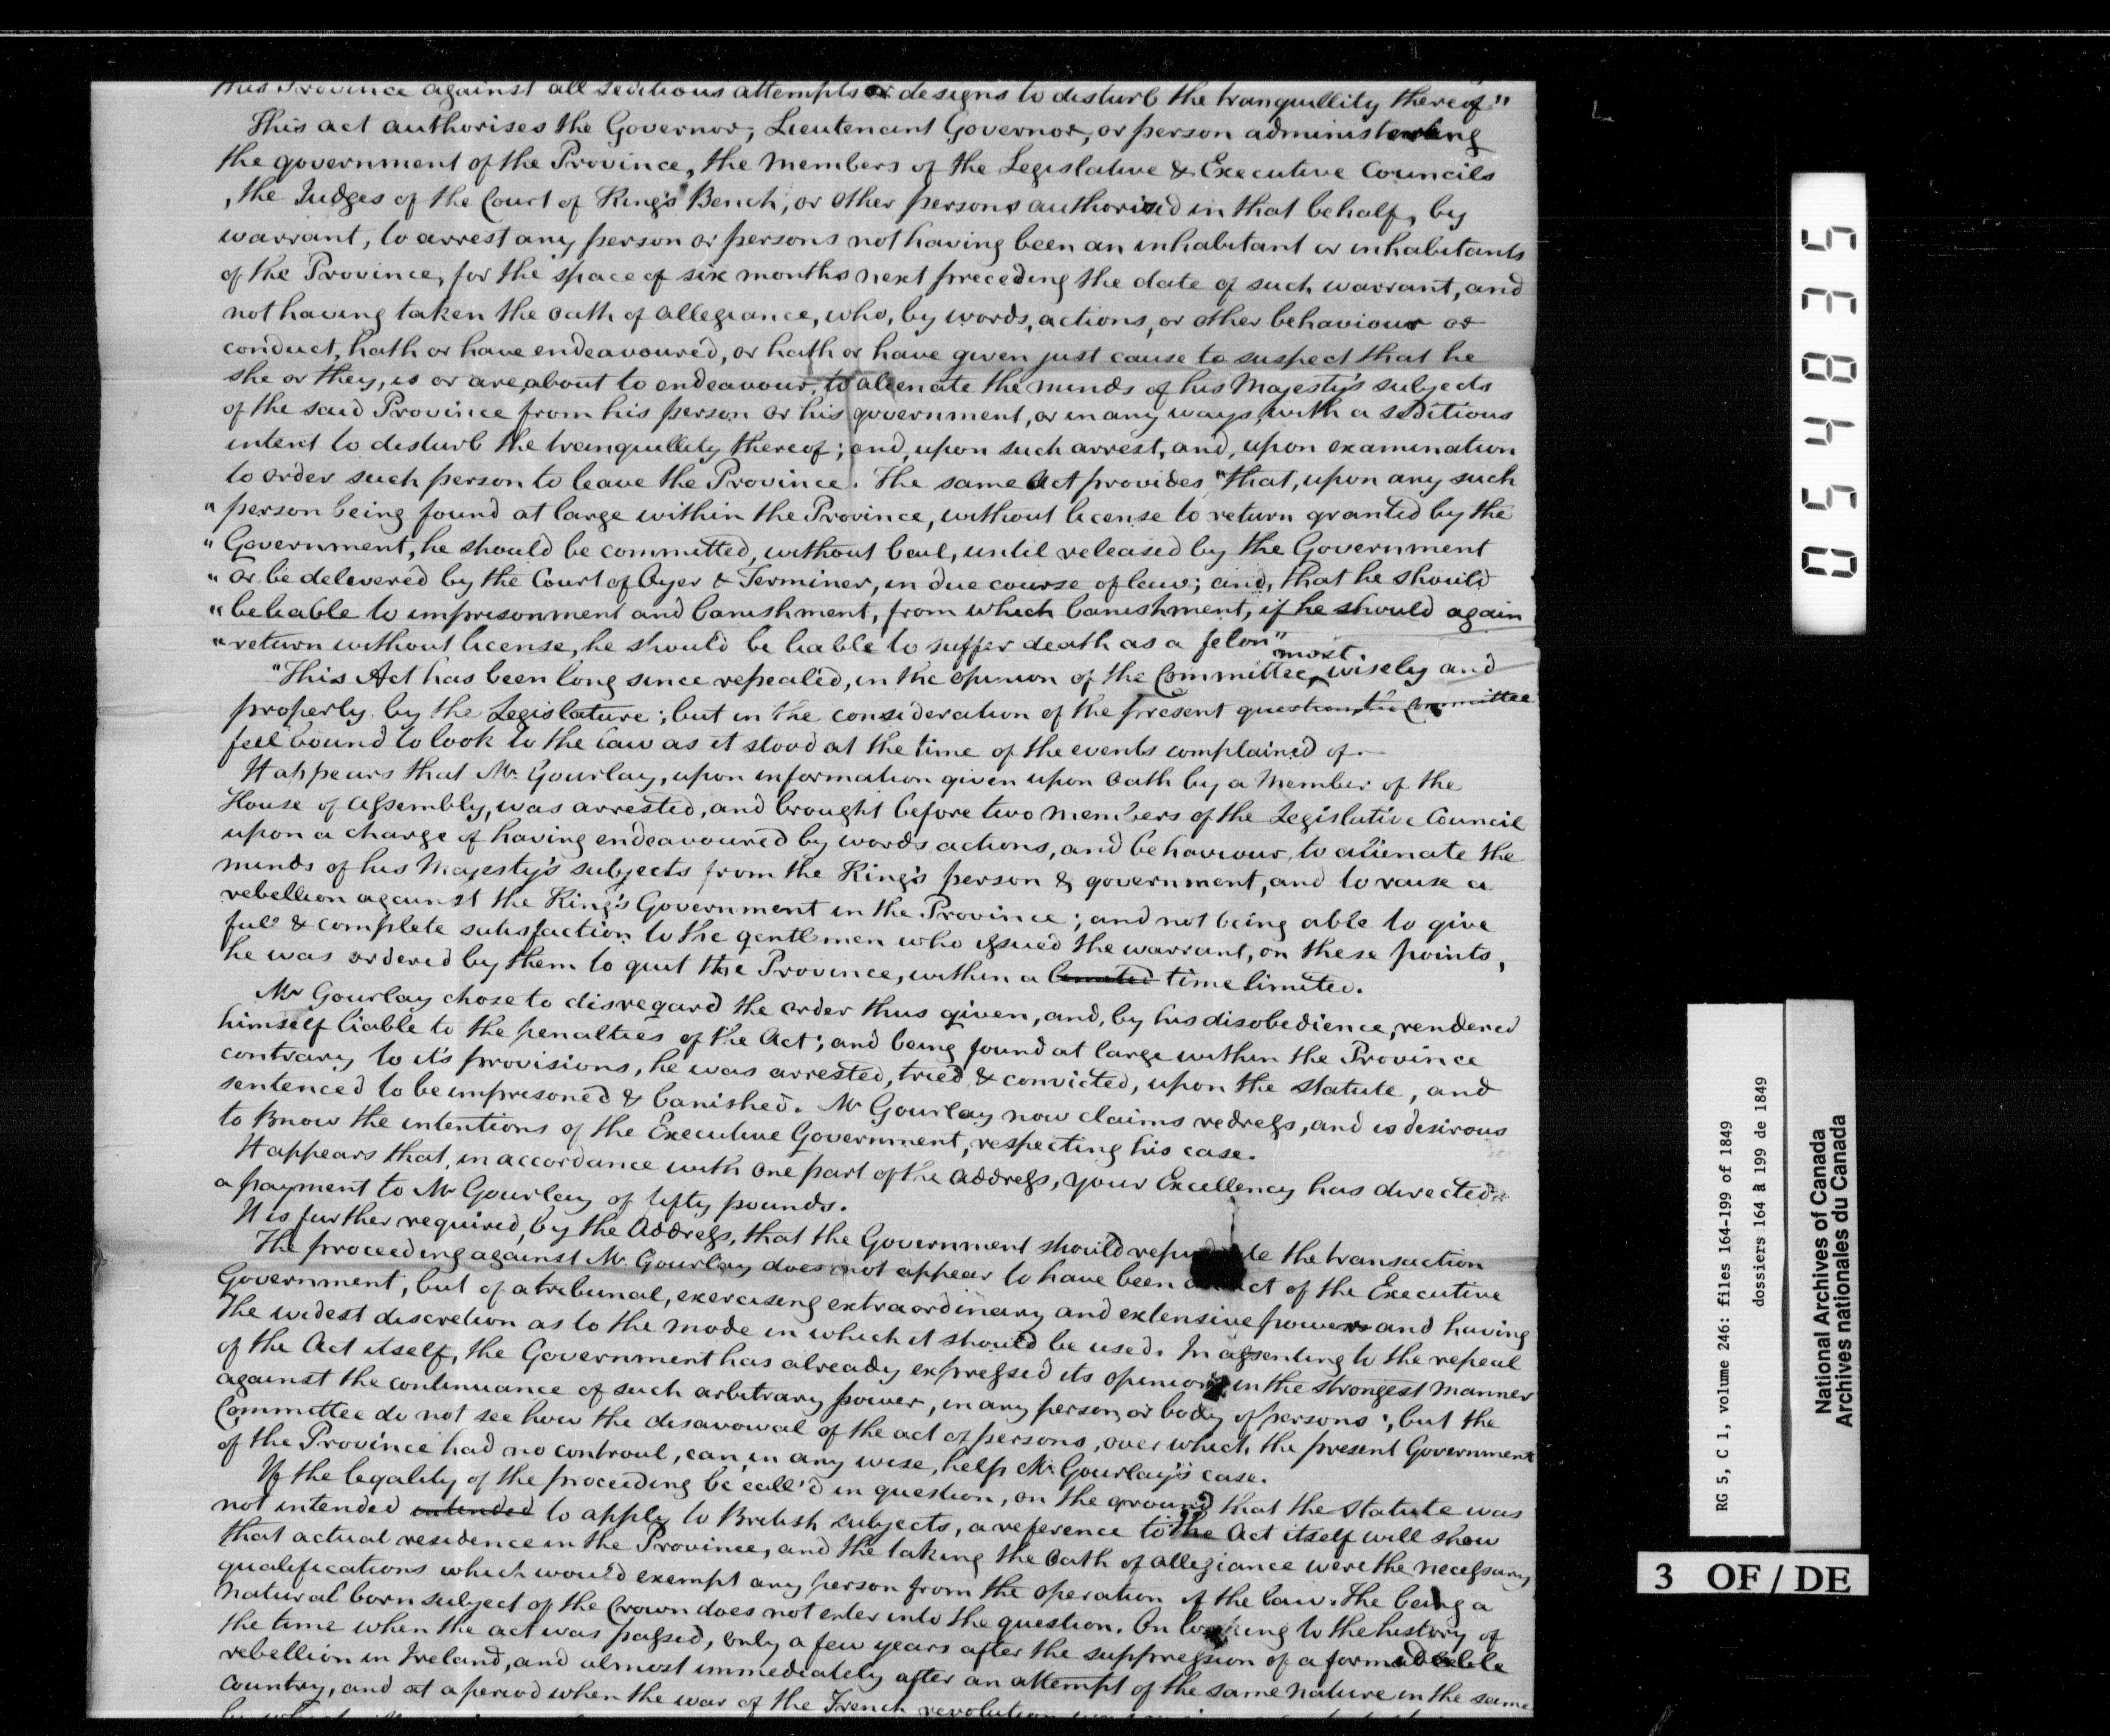 this Province against all seditious attempts or designs to disturb the tranquillity thereof."
This act authorises the Governor, Lieutenant Governor, or person administering
the government of the Province, the members of the Legislative & Executive Councils
, the Judges of the Court of King's Bench, or other persons authorised in that behalf, by
warrant, to arrest any person or persons not having been an inhabitant or inhabitants
of the Province, for the space of six months next preceding the date of such warrant, and
not having taken the oath of allegiance, who, by words, actions, or other behaviour or
conduct, hath or have endeavoured, or hath or have given just cause to suspect that he
she or they, is or are, about to endeavour, to alienate the minds of his Majesty's subjects
of the said Province from his person or his government, or in any ways, with a seditious
intent to disturb the tranquillity thereof; and, upon such arrest, and, upon examination
to order such person to leave the Province. The same Act provides "that, upon any such
" person being found at large within the Province, without license to return granted by the
" Government, he should be committed, without bail, until released by the Government
" or be delivered by the Court of Oyer & Terminer, in due course of law; and, that he should
" be liable to imprisonment and banishment, from which banishment, if he should again
" return without license, he should be liable to suffer death as a felon"
"This Act has been long since repealed, in the opinion of the Committee, most wisely and
properly by the Legislature; but in the consideration of the present question, the Committee
feel bound to look to the law as it stood at the time of the events complained of.—
It appears that Mr Gourlay, upon information given upon oath by a Member of the
House of Assembly, was arrested, and brought before two members of the Legislative Council
upon a charge of having endeavoured by words actions, and behaviour, to alienate the
minds of his Majesty's subjects from the King's person & government, and to raise a
rebellion against the King's Government in the Province; and not being able to give
full & complete satisfaction to the gentlemen who issued the warrant, on these points,
he was ordered by them to quit the Province, within a limited time limited.
Mr Gourlay chose to disregard the order thus given, and, by his disobedience, rendered
himself liable to the penalties of the Act; and being found at large within the Province
contrary to it's provisions, he was arrested, tried & convicted, upon the statute, and
sentenced to be imprisoned & banished. Mr Gourlay now claims redress, and is desirous
to know the intentions of the Executive Government, respecting his case.
It appears that, in accordance with one part of the Address, your Excellency has directed
a payment to Mr Gourlay of fifty pounds.
It is further required, by the Address, that the Government should repudiate the transaction
The proceeding against Mr Gourlay does not appear to have been act of the Executive
Government, but of a tribunal, exercising extraordinary and extensive powers and having
the widest discretion as to the mode in which it should be used. In assenting to the repeal
of the Act itself, the Government has already expressed its opinion, in the strongest manner
against the continuance of such arbitrary power, in any person, or body of persons; but the
Committee do not see how the disavowal of the act of persons, over which the present Government
of the Province had no controul, can, in any wise, help Mr Gourlay's case.
If the legality of the proceeding be call'd in question, on the ground that the statute was
not intended intended to apply to British subjects, a reference to the Act itself will show
that actual residence in the Province, and the taking the oath of allegiance were the necessary
qualifications which would exempt any person from the operation of the law. The being a
natural born subject of the Crown does not enter into the question. On looking to the history of
the time when the act was passed, only a few years after the suppression of a formidable
rebellion in Ireland, and almost immediately after an attempt of the same nature in the same
country, and at a period when the war of the French revolution
054835
RG 5, C 1, volume 246: files 164-199 of 1849
dossiers 164 à 199 de 1849
National Archives of Canada
Archives nationales du Canada
3 OF / DE